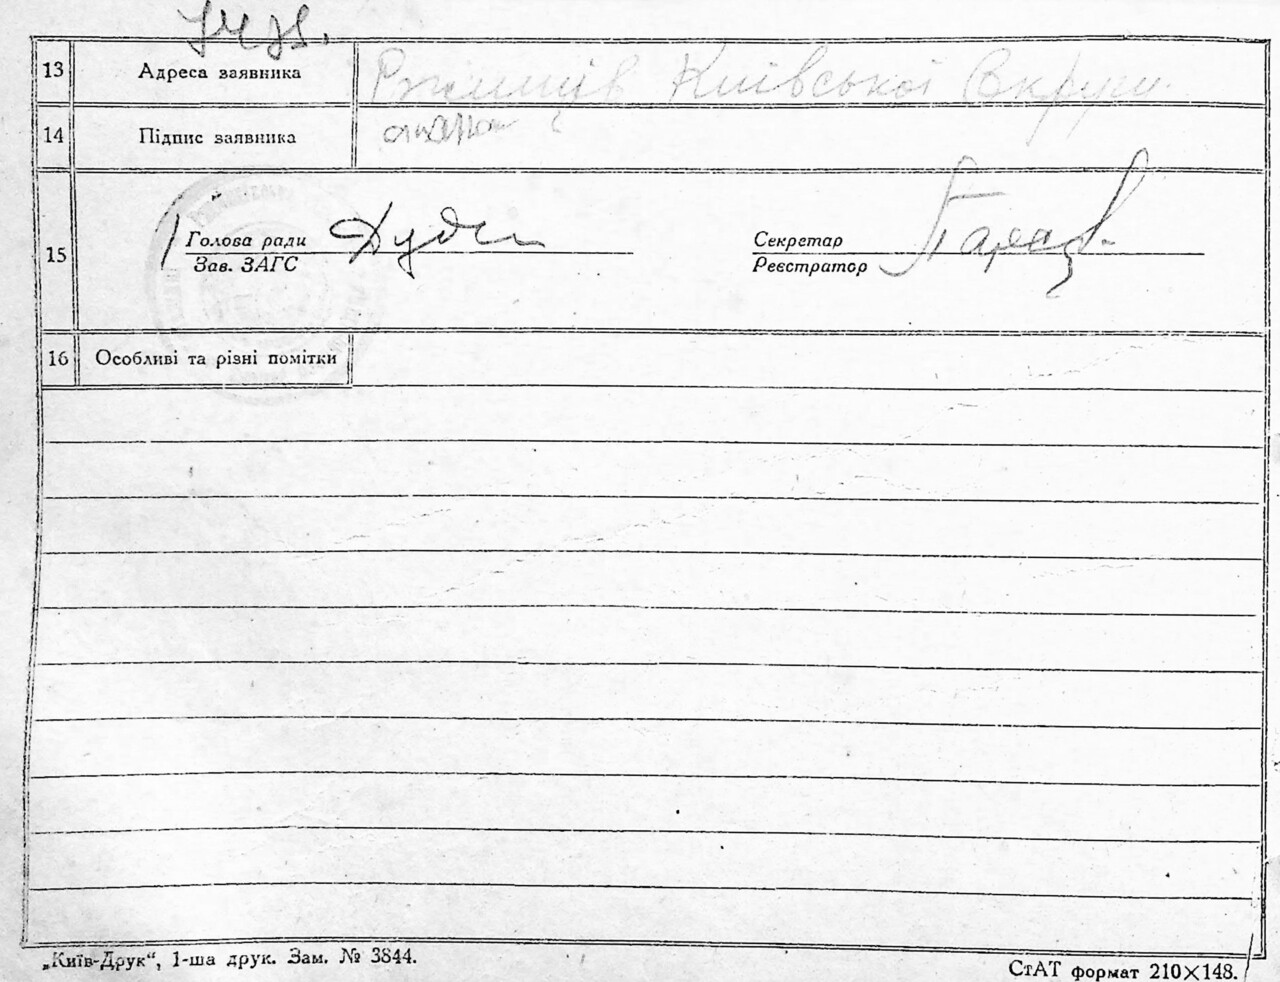 13 Адреса заявника Ржищів Київської Округи.
14 Підпис заявника
15 Голова ради Секретар
Зав. ЗАГС Реєстратор
16 Особливі та різні помітки
„Київ-Друк“, 1-ша друк. Зам. № 3844.
СтАТ формат 210×148.